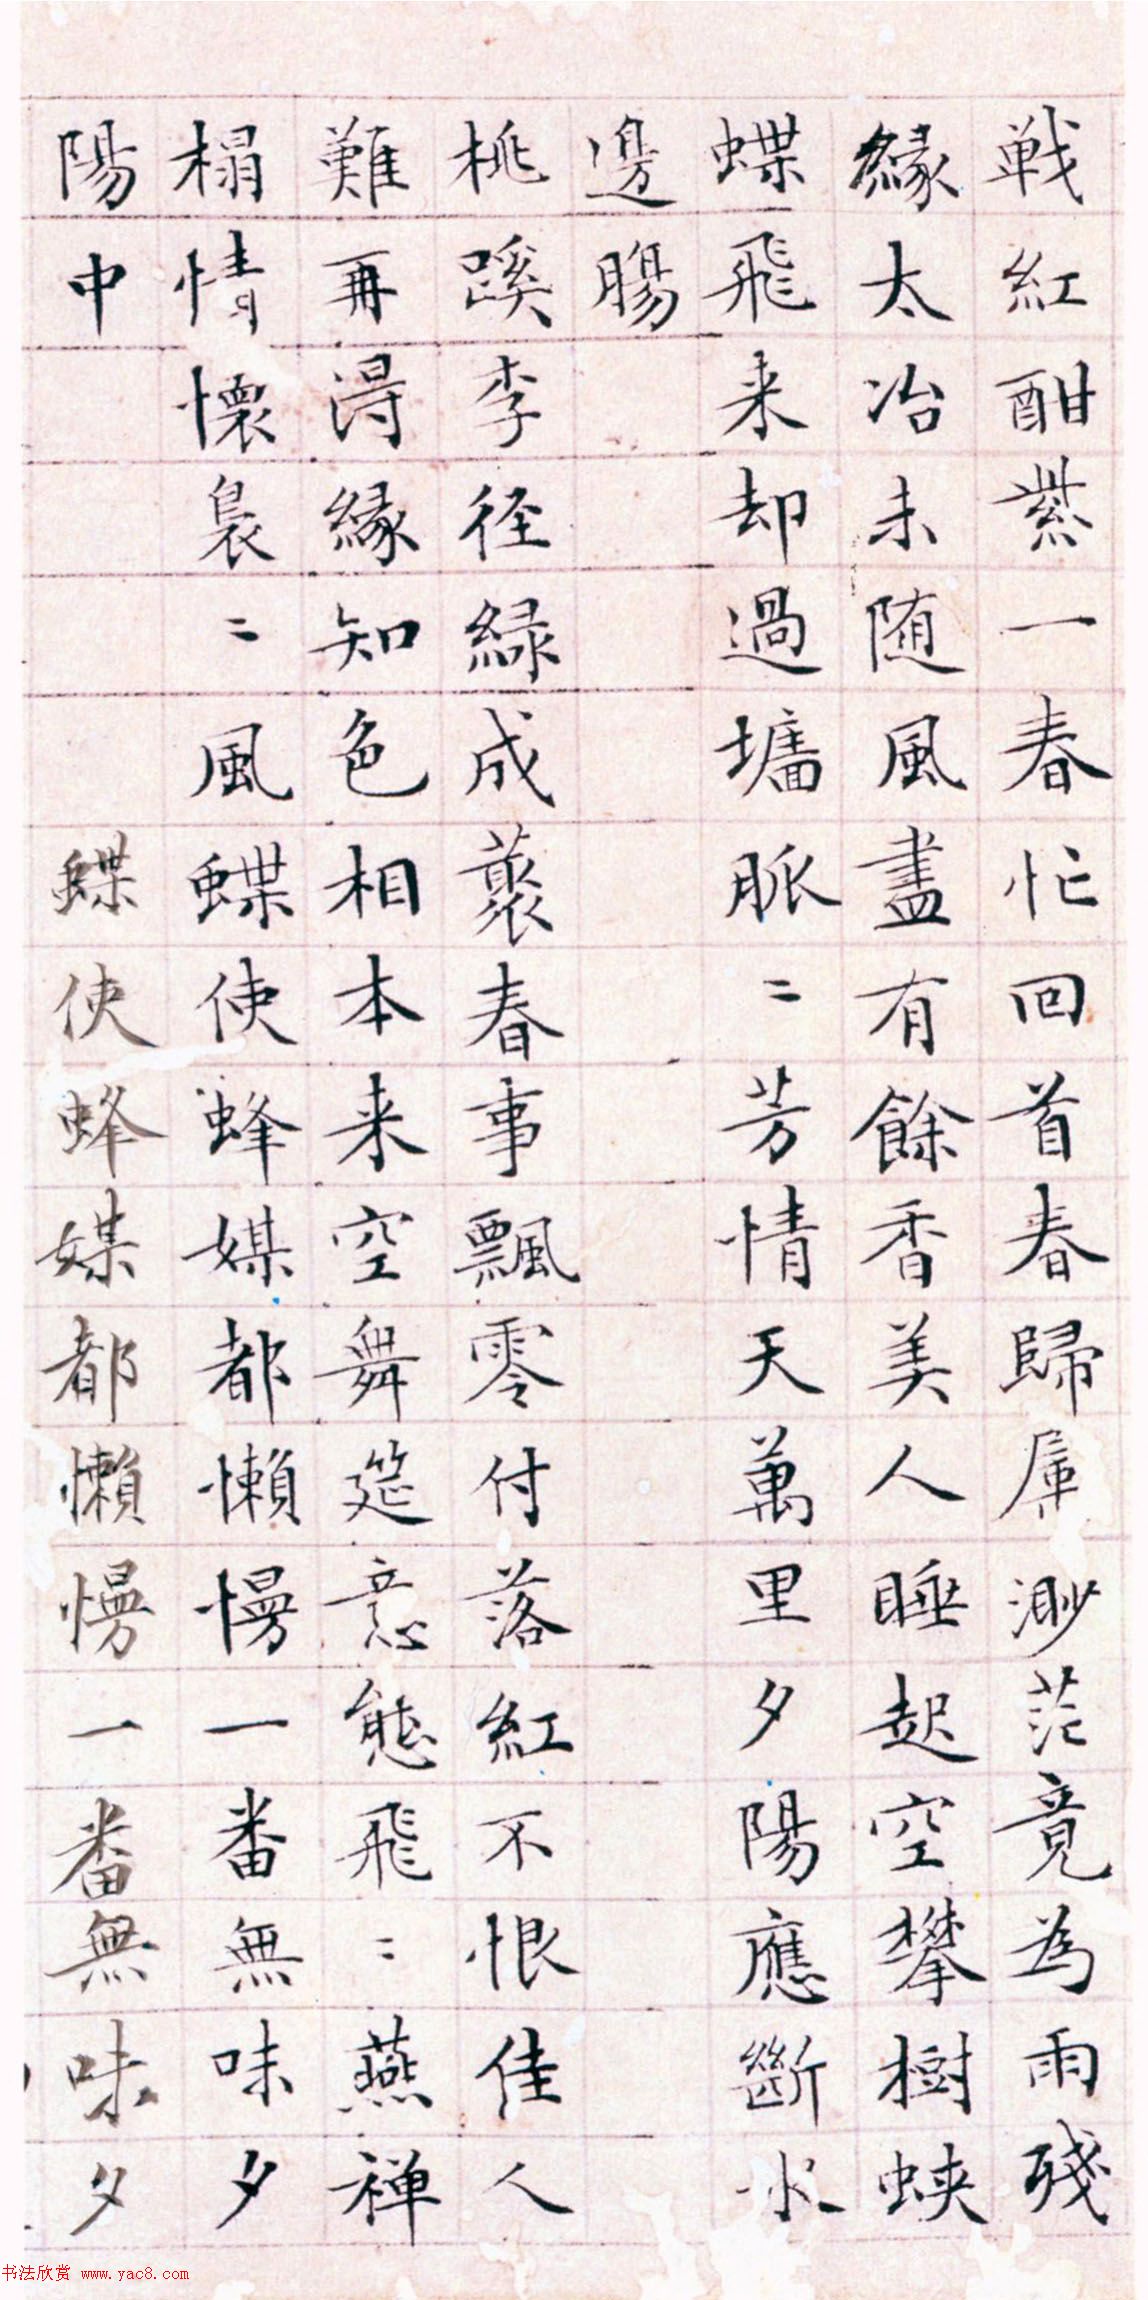 戦紅酣紫一春忙回首春歸屬渺茫竟為雨殘
緣太冶未随風盡有餘香美人睡起空攀樹蛺
蝶飛来却過墻脈〻芳情天萬里夕陽應斷水
邊腸
桃蹊李径緑成藂春事飄零付落紅不恨佳人
難再得緣知色相本来空舞筵意態飛〻燕禅
榻情懷裊〻風蝶使蜂媒都懶慢一番無味夕
陽中
蝶使蜂媒都懶慢一番無味夕
书法欣赏 www.yac8.com